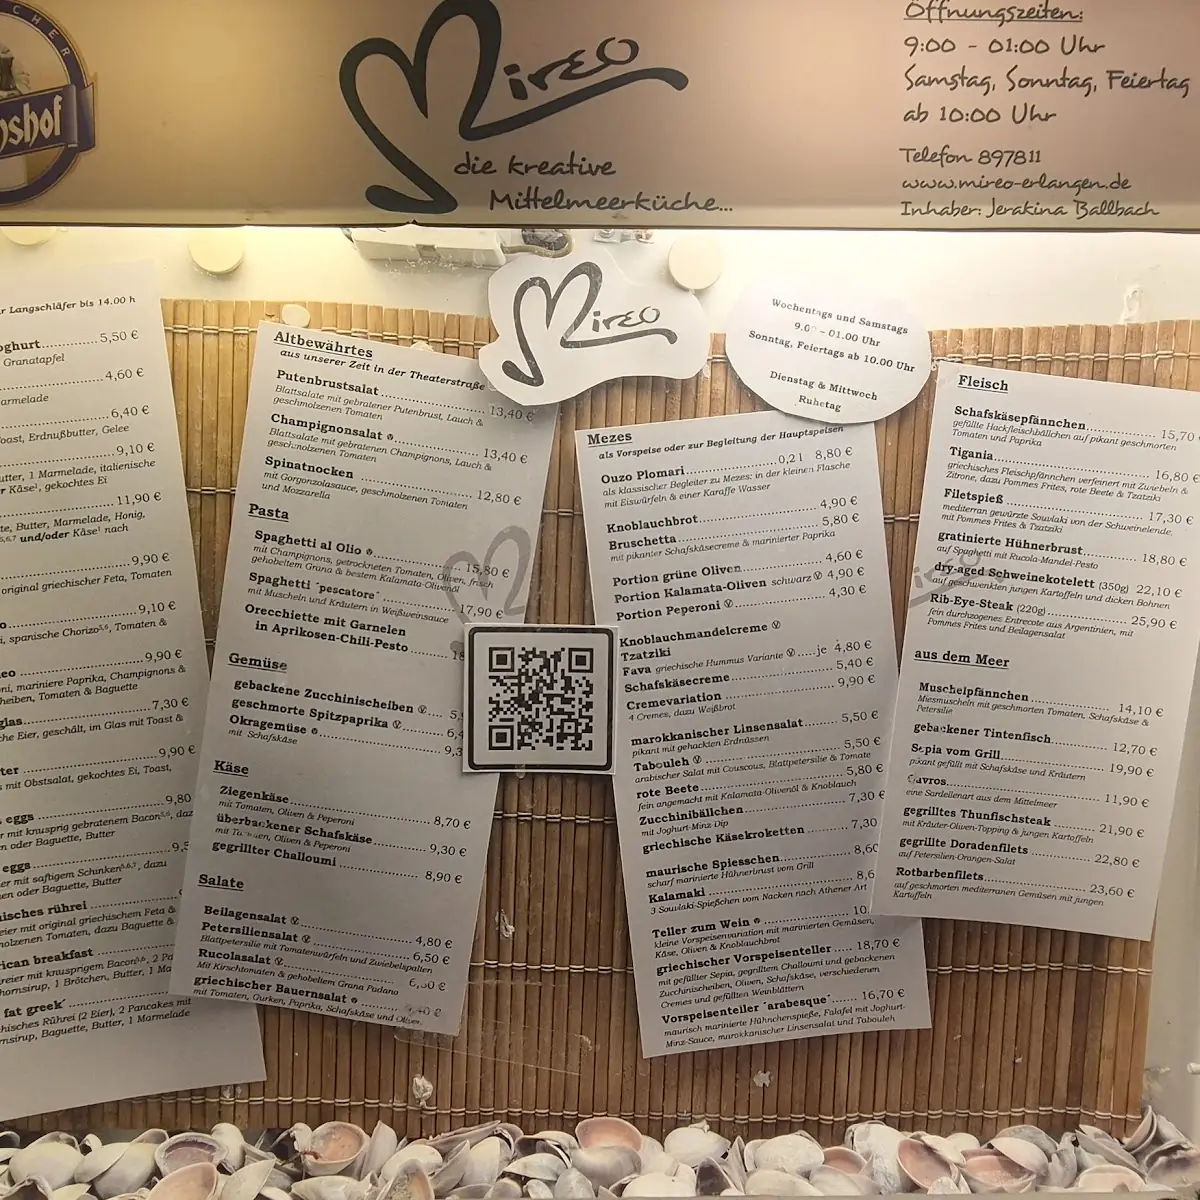 CHER
Mireo
die kreative
Mittelmeerküche...
Öffnungszeiten:
9:00 - 01:00 Uhr
Samstag, Sonntag, Feiertag
ab 10:00 Uhr
Telefon 897811
www.mireo-erlangen.de
Inhaber: Jerakina Ballbach
Mireo
Wochentags und Samstags
9.00 - 01.00 Uhr
Sonntag, Feiertags ab 10.00 Uhr
Dienstag & Mittwoch
Ruhetag
Langschläfer bis 14.00 h
5,50 €
Granatapfel
4,60 €
6,40 €
Erdnußbutter, Gelee
9,10 €
1 Marmelade, italienische
Käse¹, gekochtes Ei
11,90 €
Butter, Marmelade, Honig,
und/oder Käse¹ nach
9,90 €
original griechischer Feta, Tomaten
9,10 €
spanische Chorizo⁵,⁶, Tomaten &
9,90 €
mariniere Paprika, Champignons &
Tomaten & Baguette
7,30 €
Eier, geschält, im Glas mit Toast &
9,90 €
mit Obstsalat, gekochtes Ei, Toast,
eggs 9,80
mit knusprig gebratenem Bacon⁵,⁶, daz
oder Baguette, Butter
eggs
mit saftigem Schinken⁵,⁶,⁷, dazu
oder Baguette, Butter
rührei
mit original griechischem Feta &
Tomaten, dazu Baguette &
breakfast
mit knusprigem
1 Brötchen, Butter, 1
fat greek'
Rührei (2 Eier), 2 Pancakes mit
Baguette, Butter, 1 Marmelade
Altbewährtes
aus unserer Zeit in der Theaterstraße
Putenbrustsalat 13,40 €
Blattsalate mit gebratener Putenbrust, Lauch &
geschmolzenen Tomaten
Champignonsalat 13,40 €
Blattsalate mit gebratenen Champignons, Lauch &
geschmolzenen Tomaten
Spinatnocken 12,80 €
mit Gorgonzolasauce, geschmolzenen Tomaten
und Mozzarella
Pasta
Spaghetti al Olio 15,80 €
mit Champignons, getrockneten Tomaten, Oliven, frisch
gehobeltem Grana & bestem Kalamata-Olivenöl
Spaghetti ´pescatore´ 17,90 €
mit Muscheln und Kräutern in Weißweinsauce
Orecchiette mit Garnelen
in Aprikosen-Chili-Pesto
Gemüse
gebackene Zucchinischeiben Ⓥ
geschmorte Spitzpaprika Ⓥ
Okragemüse
mit Schafskäse
Käse
Ziegenkäse 8,70 €
mit Tomaten, Oliven & Peperoni
überbackener Schafskäse 9,30 €
mit Tomaten, Oliven & Peperoni
gegrillter Challoumi 8,90 €
Salate
Beilagensalat Ⓥ 4,80 €
Petersiliensalat Ⓥ 6,50 €
Blattpetersilie mit Tomatenwürfeln und Zwiebelspalten
Rucolasalat Ⓥ
Mit Kirschtomaten & gehobeltem Grana Padano
griechischer Bauernsalat
mit Tomaten, Gurken, Paprika, Schafskäse und Oliven
Mezes
als Vorspeise oder zur Begleitung der Hauptspeisen
Ouzo Plomari 0,2 l 8,80 €
als klassischer Begleiter zu Mezes: in der kleinen Flasche
mit Eiswürfeln & einer Karaffe Wasser
Knoblauchbrot 4,90 €
Bruschetta 5,80 €
mit pikanter Schafskäsecreme & marinierter Paprika
Portion grüne Oliven 4,60 €
Portion Kalamata-Oliven schwarz Ⓥ 4,90 €
Portion Peperoni Ⓥ 4,30 €
Knoblauchmandelcreme Ⓥ
Tzatziki
Fava griechische Hummus Variante Ⓥ je 4,80 €
Schafskäsecreme 5,40 €
Cremevariation 9,90 €
4 Cremes, dazu Weißbrot
marokkanischer Linsensalat 5,50 €
pikant mit gehackten Erdnüssen
Tabouleh Ⓥ 5,50 €
arabischer Salat mit Couscous, Blattpetersilie & Tomate
rote Beete 5,80 €
fein angemacht mit Kalamata-Olivenöl & Knoblauch
Zucchinibällchen 7,30 €
mit Joghurt-Minz Dip
griechische Käsekroketten 7,30
maurische Spiesschen 8,60
scharf marinierte Hühnerbrust vom Grill
Kalamaki 8,6
3 Souvlaki-Spießchen vom Nacken nach Athener Art
Teller zum Wein 10.
kleine Vorspeisenvariation mit marinierten Gemüsen,
Käse, Oliven & Knoblauchbrot
griechischer Vorspeisenteller 18,70 €
mit gefüllter Sepia, gegrilltem Challoumi und gebackenen
Zucchinischeiben, Oliven, Schafskäse, verschiedenen
Cremes und gefüllten Weinblättern
Vorspeisenteller ´arabesque´ 16,70 €
maurisch marinierte Hühnchenspieße, Falafel mit Joghurt-
Minz-Sauce, marokkanischer Linsensalat und Tabouleh
Fleisch
Schafskäsepfännchen 15,70
gefüllte Hackfleischbällchen auf pikant geschmorten
Tomaten und Paprika
Tigania 16,80 €
griechisches Fleischpfännchen verfeinert mit Zwiebeln &
Zitrone, dazu Pommes Frites, rote Beete & Tzatziki
Filetspieß 17,30 €
mediterran gewürzte Souvlaki von der Schweinelende,
mit Pommes Frites & Tzatziki
gratinierte Hühnerbrust 18,80 €
auf Spaghetti mit Rucola-Mandel-Pesto
dry-aged Schweinekotelett (350g) 22,10 €
auf geschwenkten jungen Kartoffeln und dicken Bohnen
Rib-Eye-Steak (220g) 25,90 €
fein durchzogenes Entrecote aus Argentinien, mit
Pommes Frites und Beilagensalat
aus dem Meer
Muschelpfännchen 14,10 €
Miesmuscheln mit geschmorten Tomaten, Schafskäse &
Petersilie
gebackener Tintenfisch 12,70 €
Sepia vom Grill 19,90 €
pikant gefüllt mit Schafskäse und Kräutern
Gavros 11,90 €
eine Sardellenart aus dem Mittelmeer
gegrilltes Thunfischsteak 21,90 €
mit Kräuter-Oliven-Topping & jungen Kartoffeln
gegrillte Doradenfilets 22,80 €
auf Petersilien-Orangen-Salat
Rotbarbenfilets 23,60 €
auf geschmorten mediterranen Gemüsen mit jungen
Kartoffeln